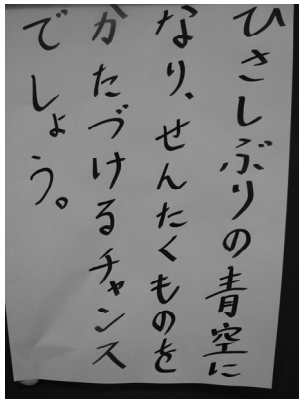 ひさしぶりの青空に
なり、せんたくものを
かたづけるチャンス
でしょう。